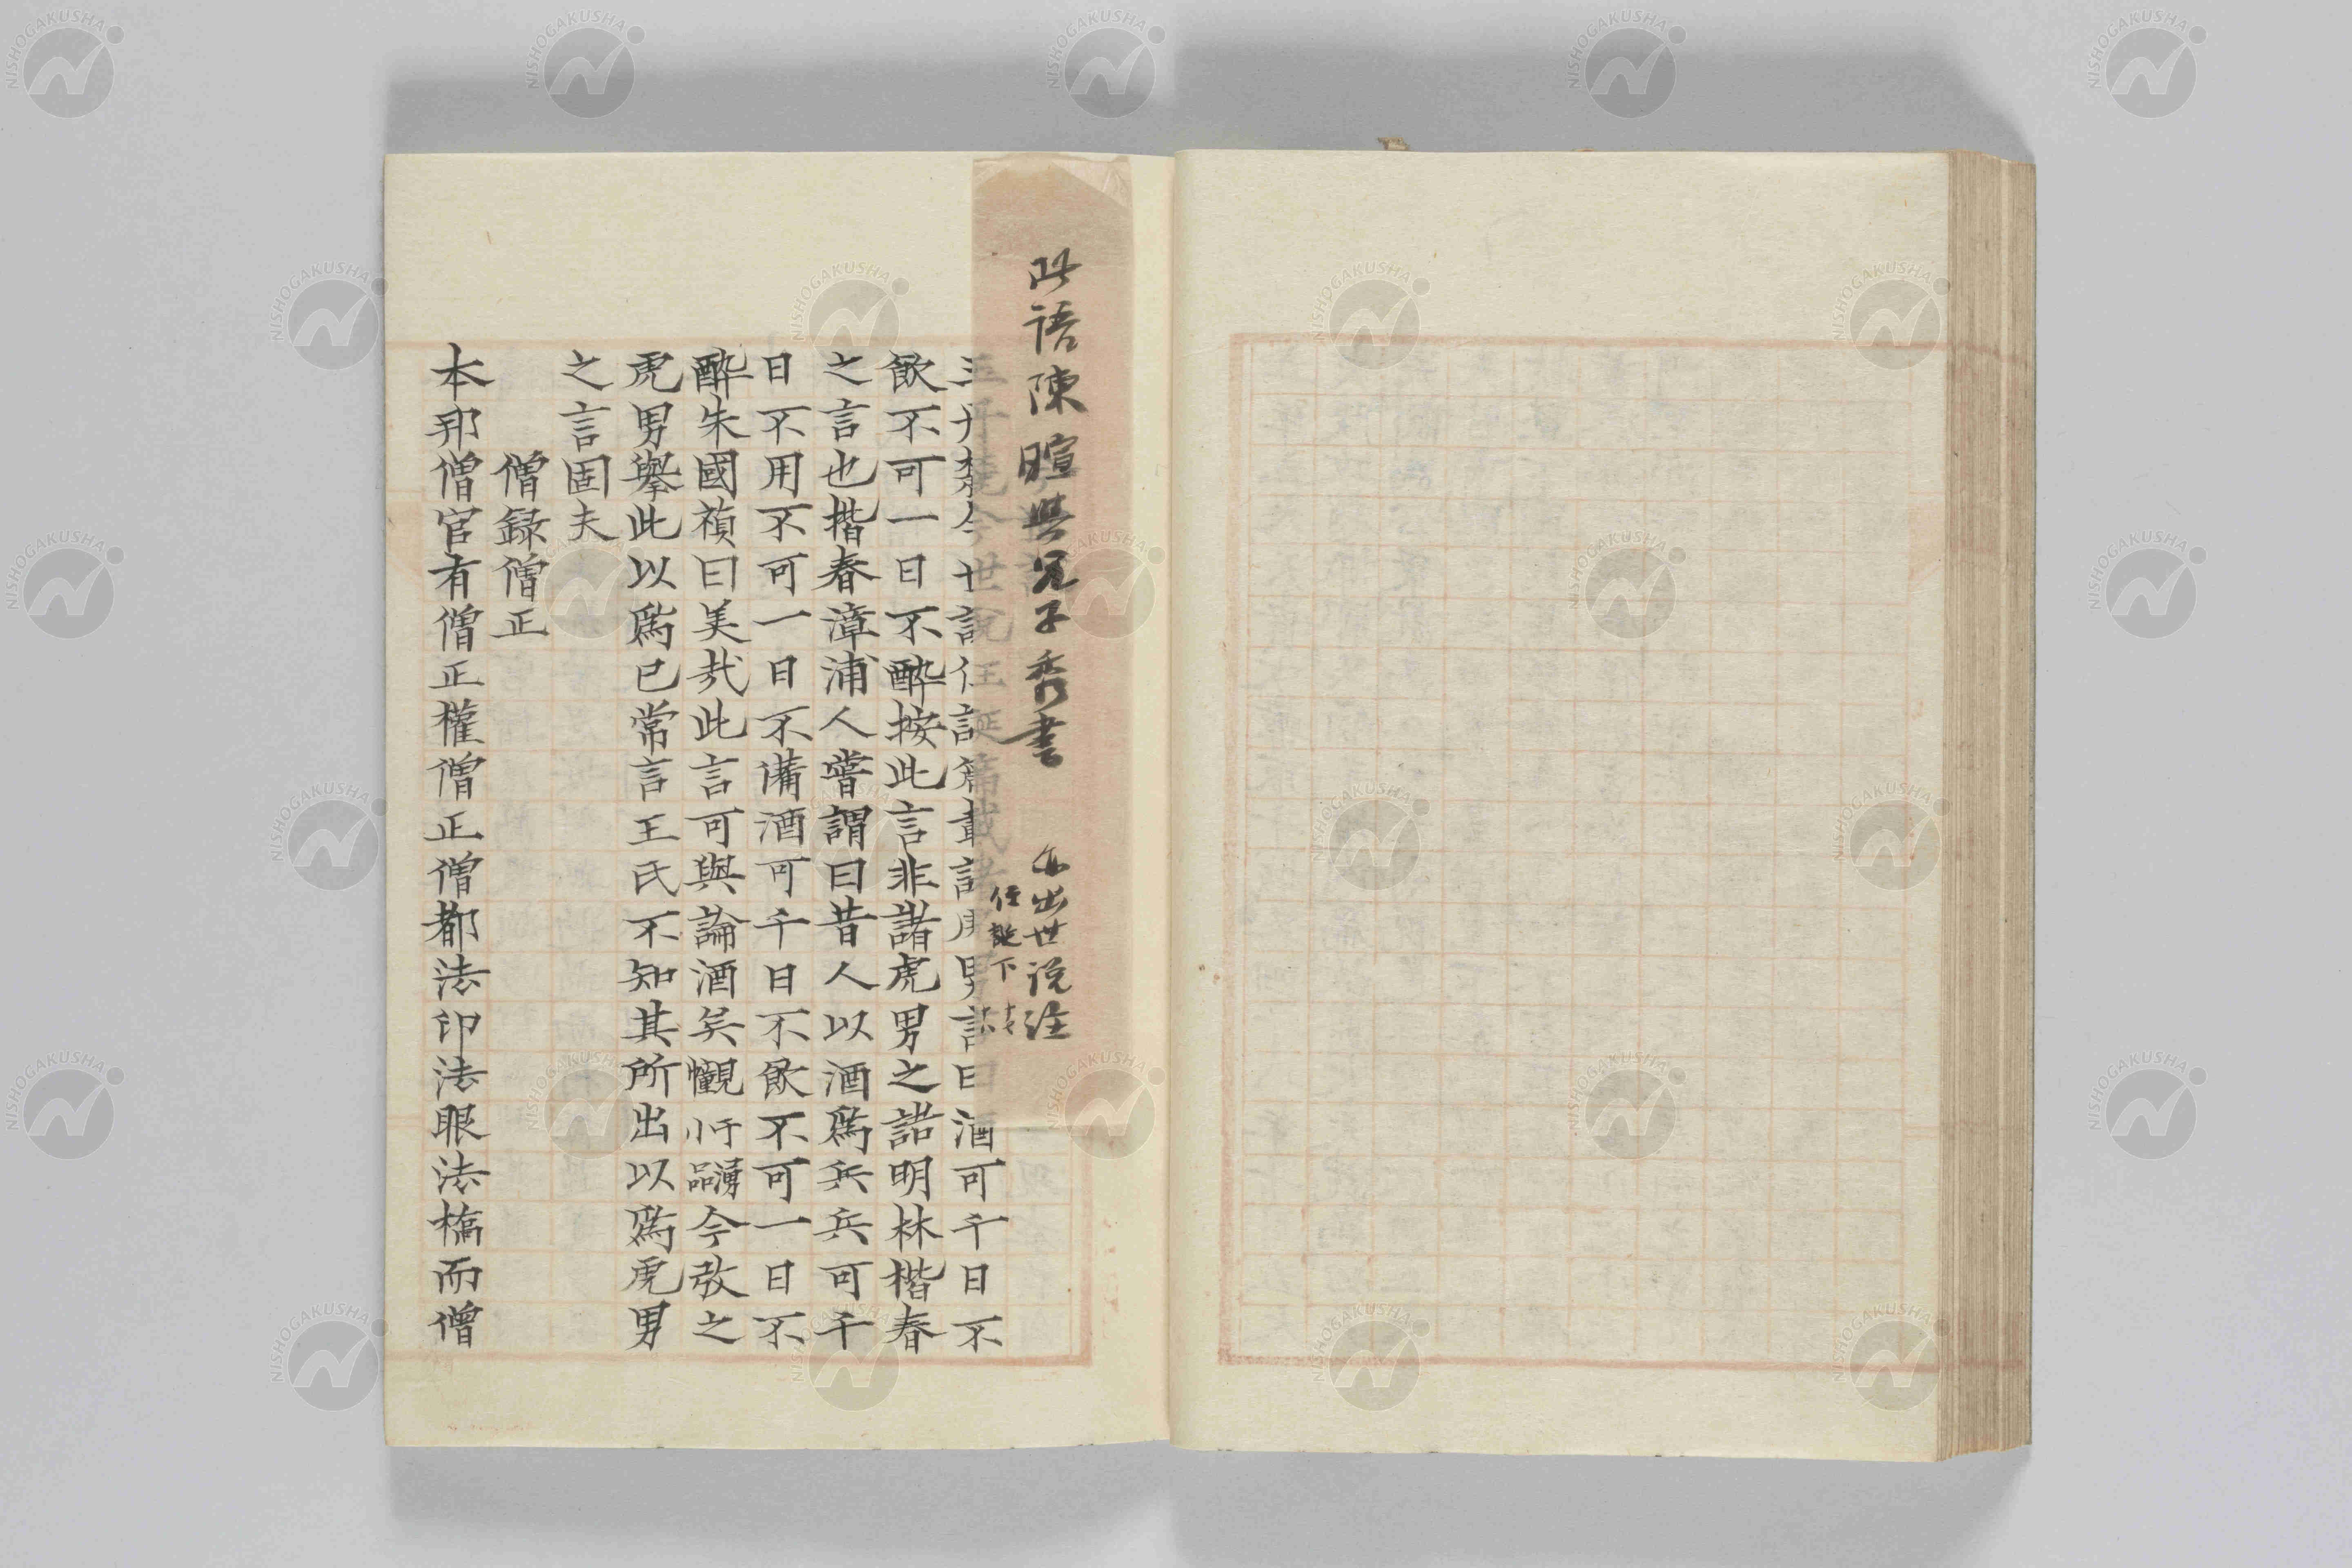 此語陳暄與兄子秀書　亦出世説注
任誕下
王丹麓今世説任誕篇載諸虎男語曰酒可千日不
飲不可一日不醉按此言非諸虎男之語明林楷春
之言也楷春漳浦人嘗謂曰昔人以酒爲兵兵可千
日不用不可一日不備酒可千日不飲不可一日不
醉朱國禎曰美哉此言可與論酒矣觀于湧幢小品今攷之
虎男舉此以爲已常言王氏不知其所出以爲虎男
之言固夫
僧録僧正
本邦僧官有僧正權僧正僧都法印法眼法橋而僧